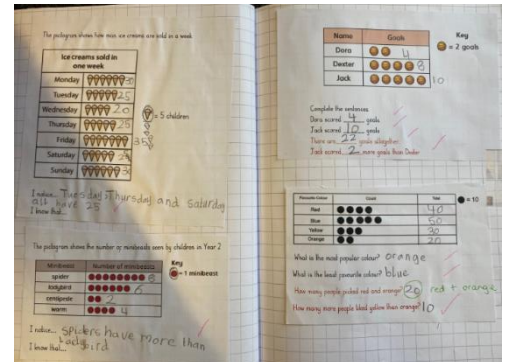 The pictogram shows how many ice creams are sold in a week
Ice creams sold in
one week
Monday 30
Tuesday 25
Wednesday 20
Thursday 25
Friday 35
Saturday 25
Sunday 30
= 5 children
I notice... Tuesday, Thursday and Saturday
all have 25
I know that...
The pictogram shows the number of minibeasts seen by children in Year 2
Minibeast Number of minibeasts
spider 8
ladybird 6
centipede 2
worm 4
Key
= 1 minibeast
I notice... spiders have more than
ladybird
I know that...
Name Goals
Dora 4
Dexter 8
Jack 10
Key
= 2 goals
Complete the sentences
Dora scored 4 goals
Jack scored 10 goals
There are 22 goals altogether
Jack scored 2 more goals than Dexter
Favourite Colour Total
Red 40
Blue 50
Yellow 30
Orange 20
= 10
What is the most popular colour? orange
What is the least favourite colour? blue
How many people picked red and orange? 20 red + orange
How many more people liked yellow than orange? 10